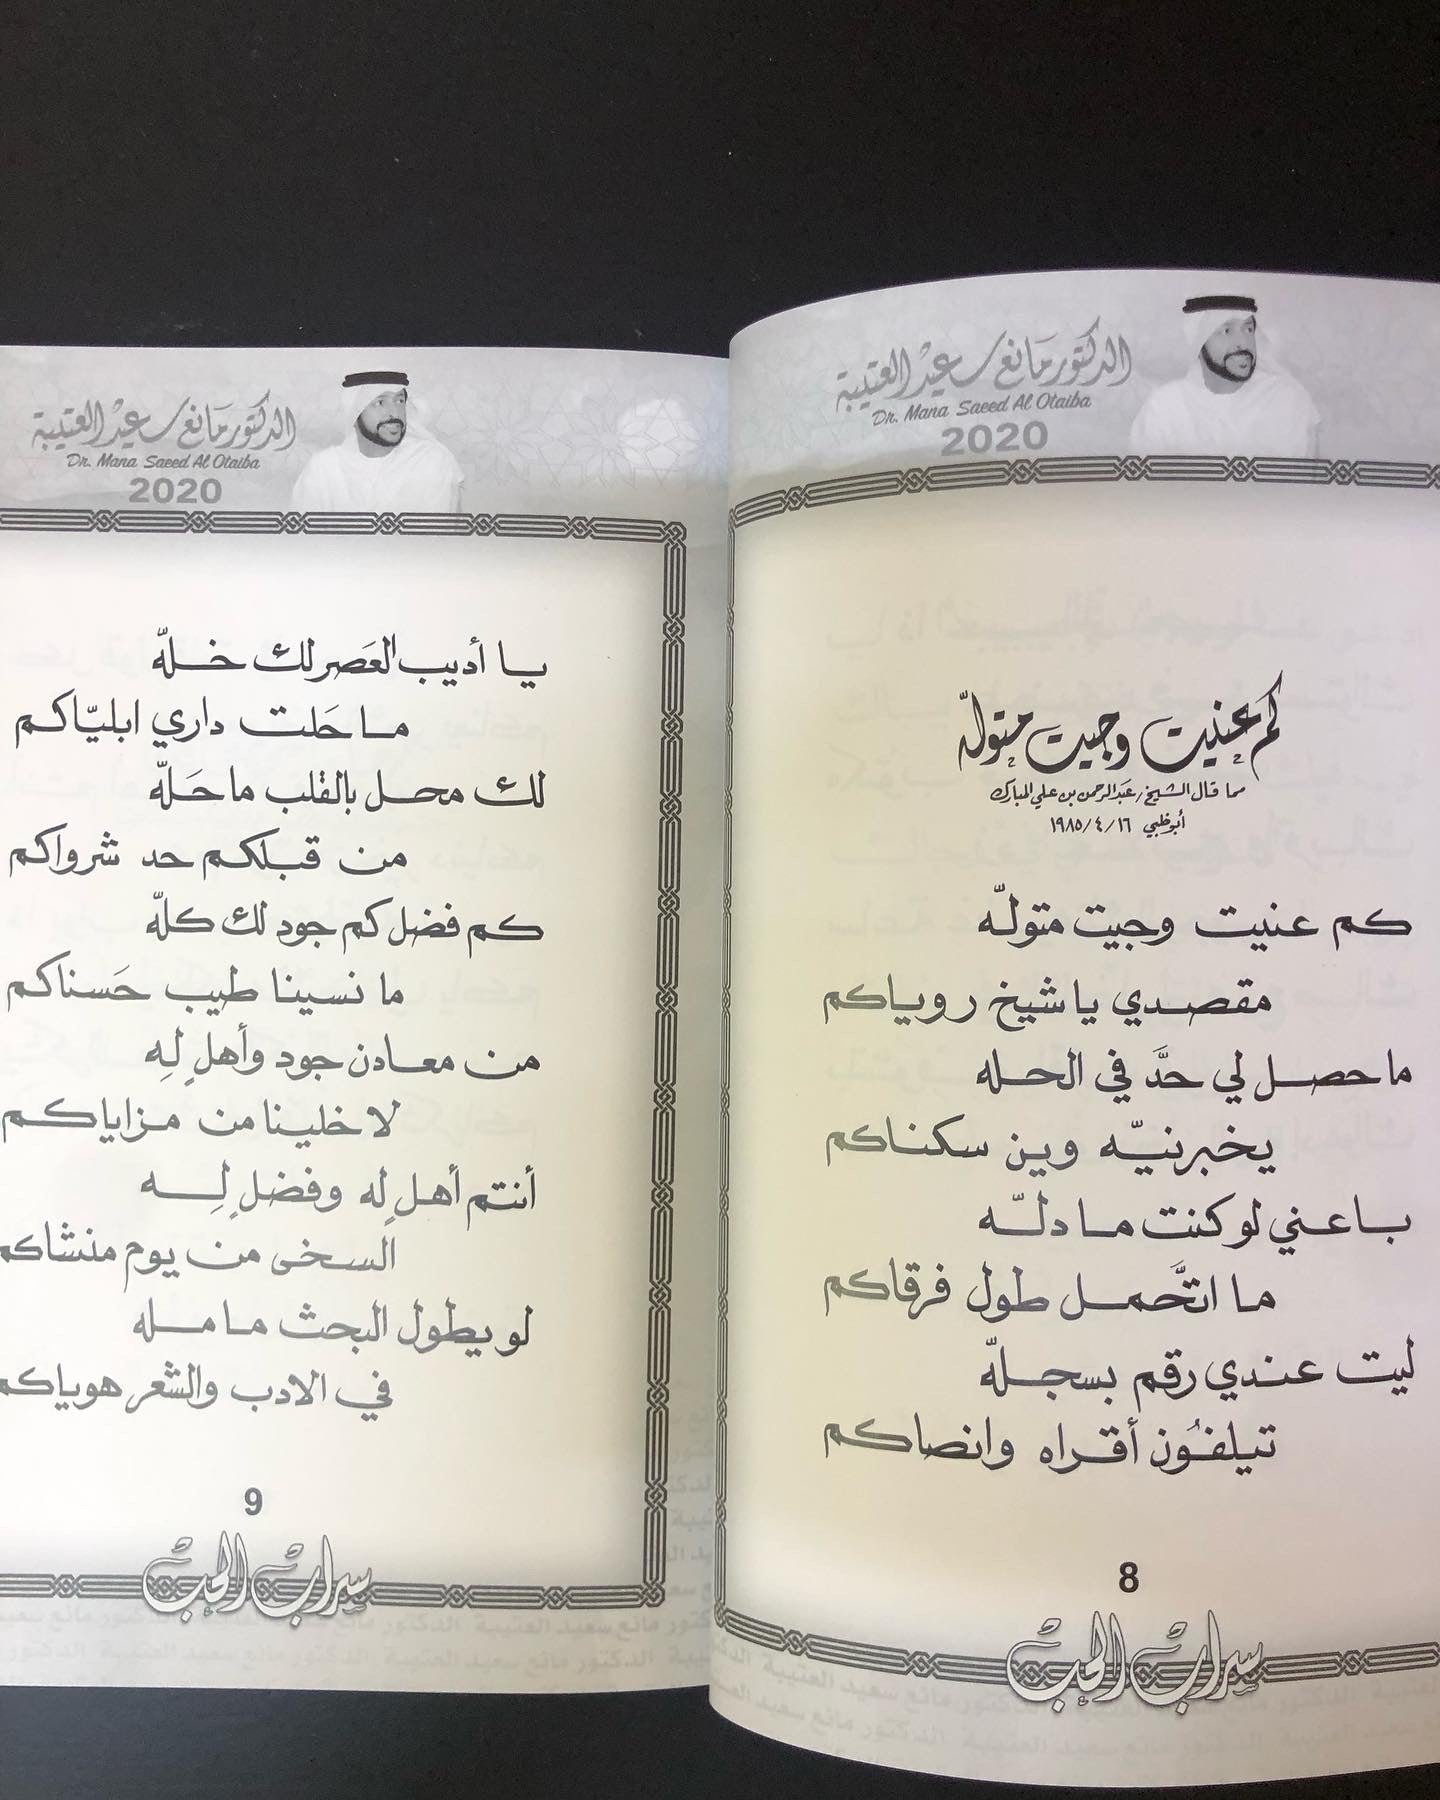 الدكتور مانع سعيد العتيبة
Dr. Mana Saeed Al Otaiba
2020
كم عنيت وجيت متولّه
مما قال الشيخ / عبدالرحمن بن علي المبارك
أبوظبي ١٦ / ٤ / ١٩٨٥
كم عنيت وجيت متولّه
مقصدي يا شيخ روياكم
ما حصل لي حدَّ في الحله
يخبرنيّه وين سكناكم
باعني لو كنت ما دلّه
ما اتَّحمل طول فرقاكم
ليت عندي رقم بسجلّه
تيلفُون أقراه وانصاكم
8
سراب الحب
الدكتور مانع سعيد العتيبة
Dr. Mana Saeed Al Otaiba
2020
يا أديب العَصر لك خلّه
ما حَلت داري ابليّاكم
لك محل بالقلب ما حَلّه
من قبلكم حد شرواكم
كم فضل كم جود لك كلّه
ما نسينا طيب حَسناكم
من معادن جود وأهلٍ لِه
لا خلينا من مزاياكم
أنتم أهلٍ له وفضلٍ لِه
السخى من يوم منشاكم
لو يطول البحث ما مله
في الادب والشعر هوياكم
9
سراب الحب